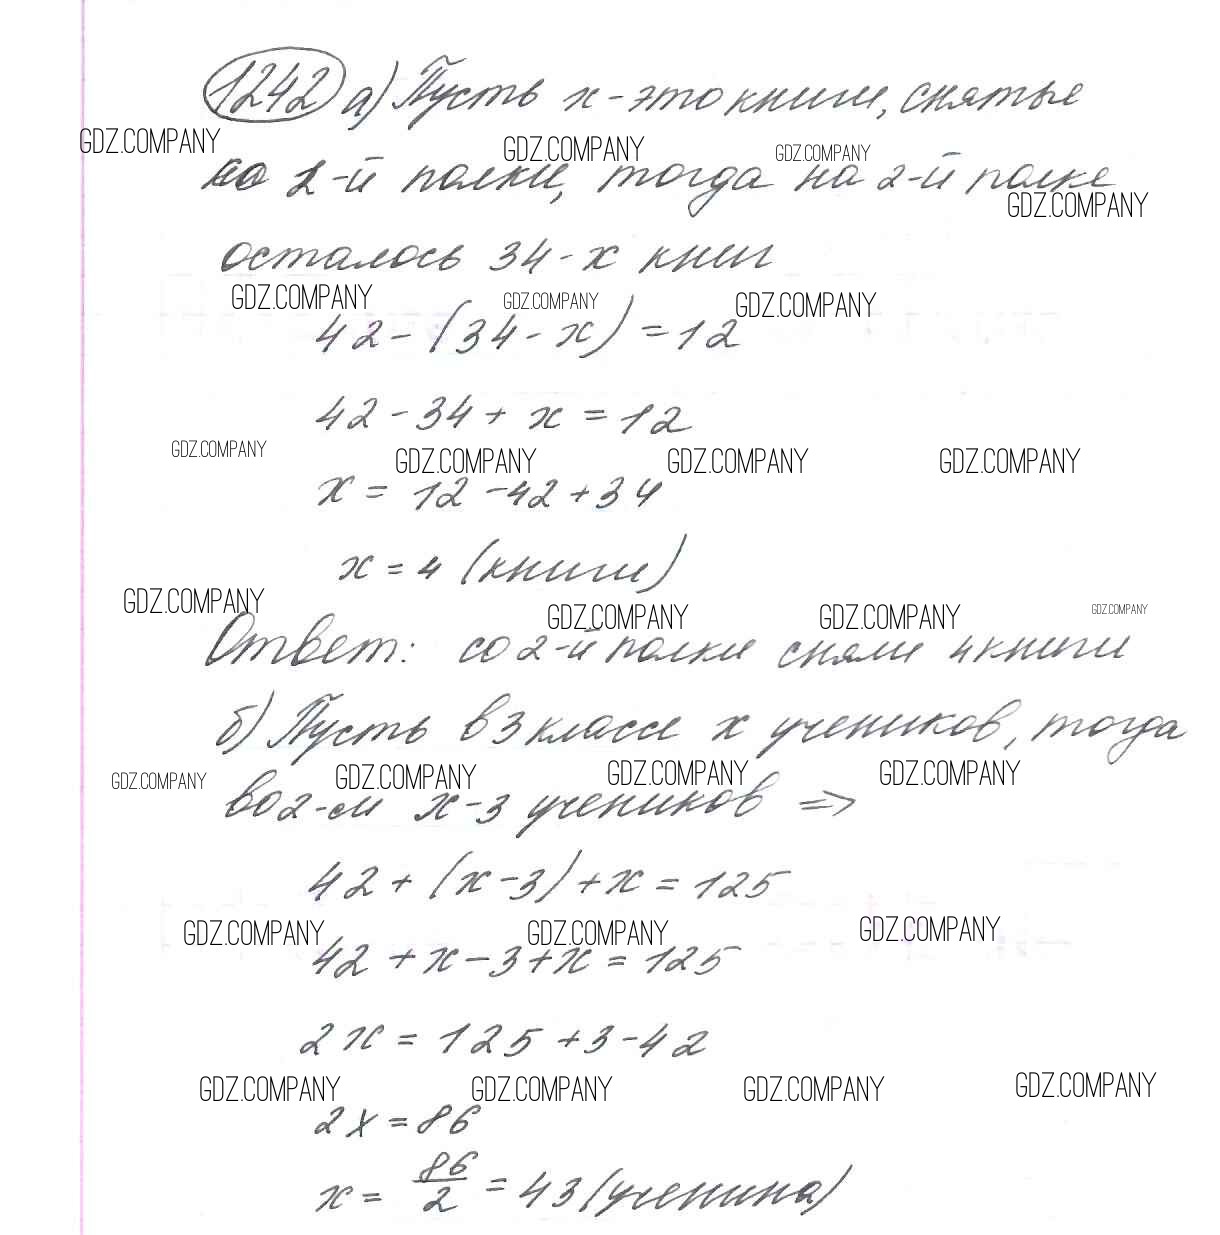 1242 а) Пусть x - это книги, снятые
GDZ.COMPANY GDZ.COMPANY GDZ.COMPANY
со 2-й полки, тогда на 2-й полке
GDZ.COMPANY
осталось 34 - x книг
GDZ.COMPANY GDZ.COMPANY GDZ.COMPANY
42 - (34 - x) = 12
42 - 34 + x = 12
GDZ.COMPANY GDZ.COMPANY GDZ.COMPANY GDZ.COMPANY
x = 12 - 42 + 34
x = 4 (книги)
GDZ.COMPANY GDZ.COMPANY GDZ.COMPANY GDZ.COMPANY
Ответ: со 2-й полки сняли 4 книги
б) Пусть в 3 классе x учеников, тогда
GDZ.COMPANY GDZ.COMPANY GDZ.COMPANY GDZ.COMPANY
во 2-ом x - 3 учеников =>
42 + (x - 3) + x = 125
GDZ.COMPANY GDZ.COMPANY GDZ.COMPANY
42 + x - 3 + x = 125
2x = 125 + 3 - 42
GDZ.COMPANY GDZ.COMPANY GDZ.COMPANY GDZ.COMPANY
2x = 86
x = 86/2 = 43 (ученика)